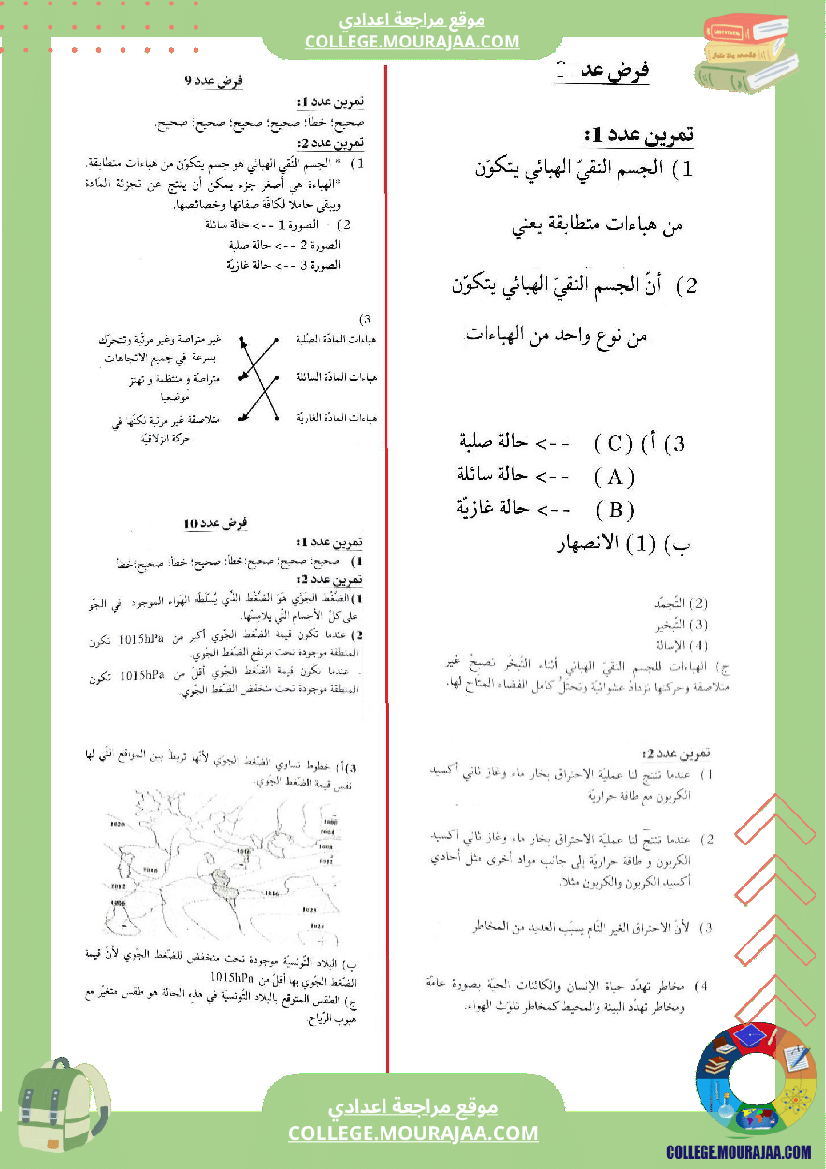 موقع مراجعة اعدادي
COLLEGE.MOURAJAA.COM
فرض عدد
تمرين عدد 1:
1) الجسم النقيّ الهبائي يتكوّن
من هباءات متطابقة يعني
2) أنّ الجسم النقيّ الهبائي يتكوّن
من نوع واحد من الهباءات.
3) أ) ( C ) --> حالة صلبة
( A ) --> حالة سائلة
( B ) --> حالة غازيّة
ب) (1) الانصهار
(2) التّجمّد
(3) التّبخير
(4) الإسالة
ج) الهباءات للجسم النقيّ الهبائي أثناء التّبخّر تصبحُ غير
متلاصقة وحركتها تزدادُ عشوائيّة وتحتلُّ كامل الفضاء المتاح لها.
تمرين عدد 2:
1) عندما تنتج لنا عمليّة الاحتراق بخار ماء وغاز ثاني أكسيد
الكربون مع طاقة حراريّة
2) عندما تنتج لنا عمليّة الاحتراق بخار ماء وغاز ثاني أكسيد
الكربون و طاقة حراريّة إلى جانب مواد أخرى مثل أحادي
أكسيد الكربون والكربون مثلا.
3) لأنّ الاحتراق الغير التّام يسبّب العديد من المخاطر
4) مخاطر تهدّد حياة الإنسان والكائنات الحيّة بصورة عامّة
ومخاطر تهدّد البيئة والمحيط كمخاطر تلوّث الهواء.
فرض عدد 9
تمرين عدد 1:
صحيح؛ خطأ؛ صحيح؛ صحيح؛ صحيح؛ صحيح.
تمرين عدد 2:
1) * الجسم النّقي الهبائي هو جسم يتكوّن من هباءات متطابقة.
*الهباءة هي أصغر جزء يمكن أن ينتج عن تجزئة المادّة
ويبقى حاملا لكافّة صفاتها وخصائصها.
2) - الصورة 1 --> حالة سائلة
الصورة 2 --> حالة صلبة
الصورة 3 --> حالة غازيّة
3)
هباءات المادّة الصّلبة غير متراصة وغير مرتّبة وتتحرّك
بسرعة في جميع الاتجاهات
هباءات المادّة السائلة متراصّة و منتظمة و تهتز
موضعيا
هباءات المادّة الغازيّة متلاصقة غير مرتبة لكنّها في
حركة انزلاقيّة
فرض عدد 10
تمرين عدد 1:
1) صحيح؛ صحيح؛ صحيح؛ خطأ؛ صحيح؛ خطأ؛ صحيح؛ خطأ
تمرين عدد 2:
1) الضّغط الجوّي هو الضّغط الّذي يُسلّطه الهواء الموجود في الجوّ
على كلّ الأجسام التّي يلامسُها.
2) عندما تكون قيمة الضّغط الجوّي أكبر من 1015hPa تكون
المنطقة موجودة تحت مرتفع الضّغط الجوّي.
. عندما تكون قيمة الضّغط الجوّي أقلّ من 1015hPa تكون
المنطقة موجودة تحت منخفض الضّغط الجوّي.
3) أ) خطوط تساوي الضّغط الجوّي لأنّها تربط بين المواقع التّي لها
نفس قيمة الضّغط الجوّي.
1020
1000
1004
1008
1012
1016
1016
1012
1016
1006
1024
ب) البلاد التّونسيّة موجودة تحت منخفض للضّغط الجوّي لأنّ قيمة
الضّغط الجوّي بها أقلّ من 1015hPa
ج) الطقس المتوقع بالبلاد التّونسيّة في هذه الحالة هو طقس متغيّر مع
هبوب الرّياح.
موقع مراجعة اعدادي
COLLEGE.MOURAJAA.COM
COLLEGE.MOURAJAA.COM